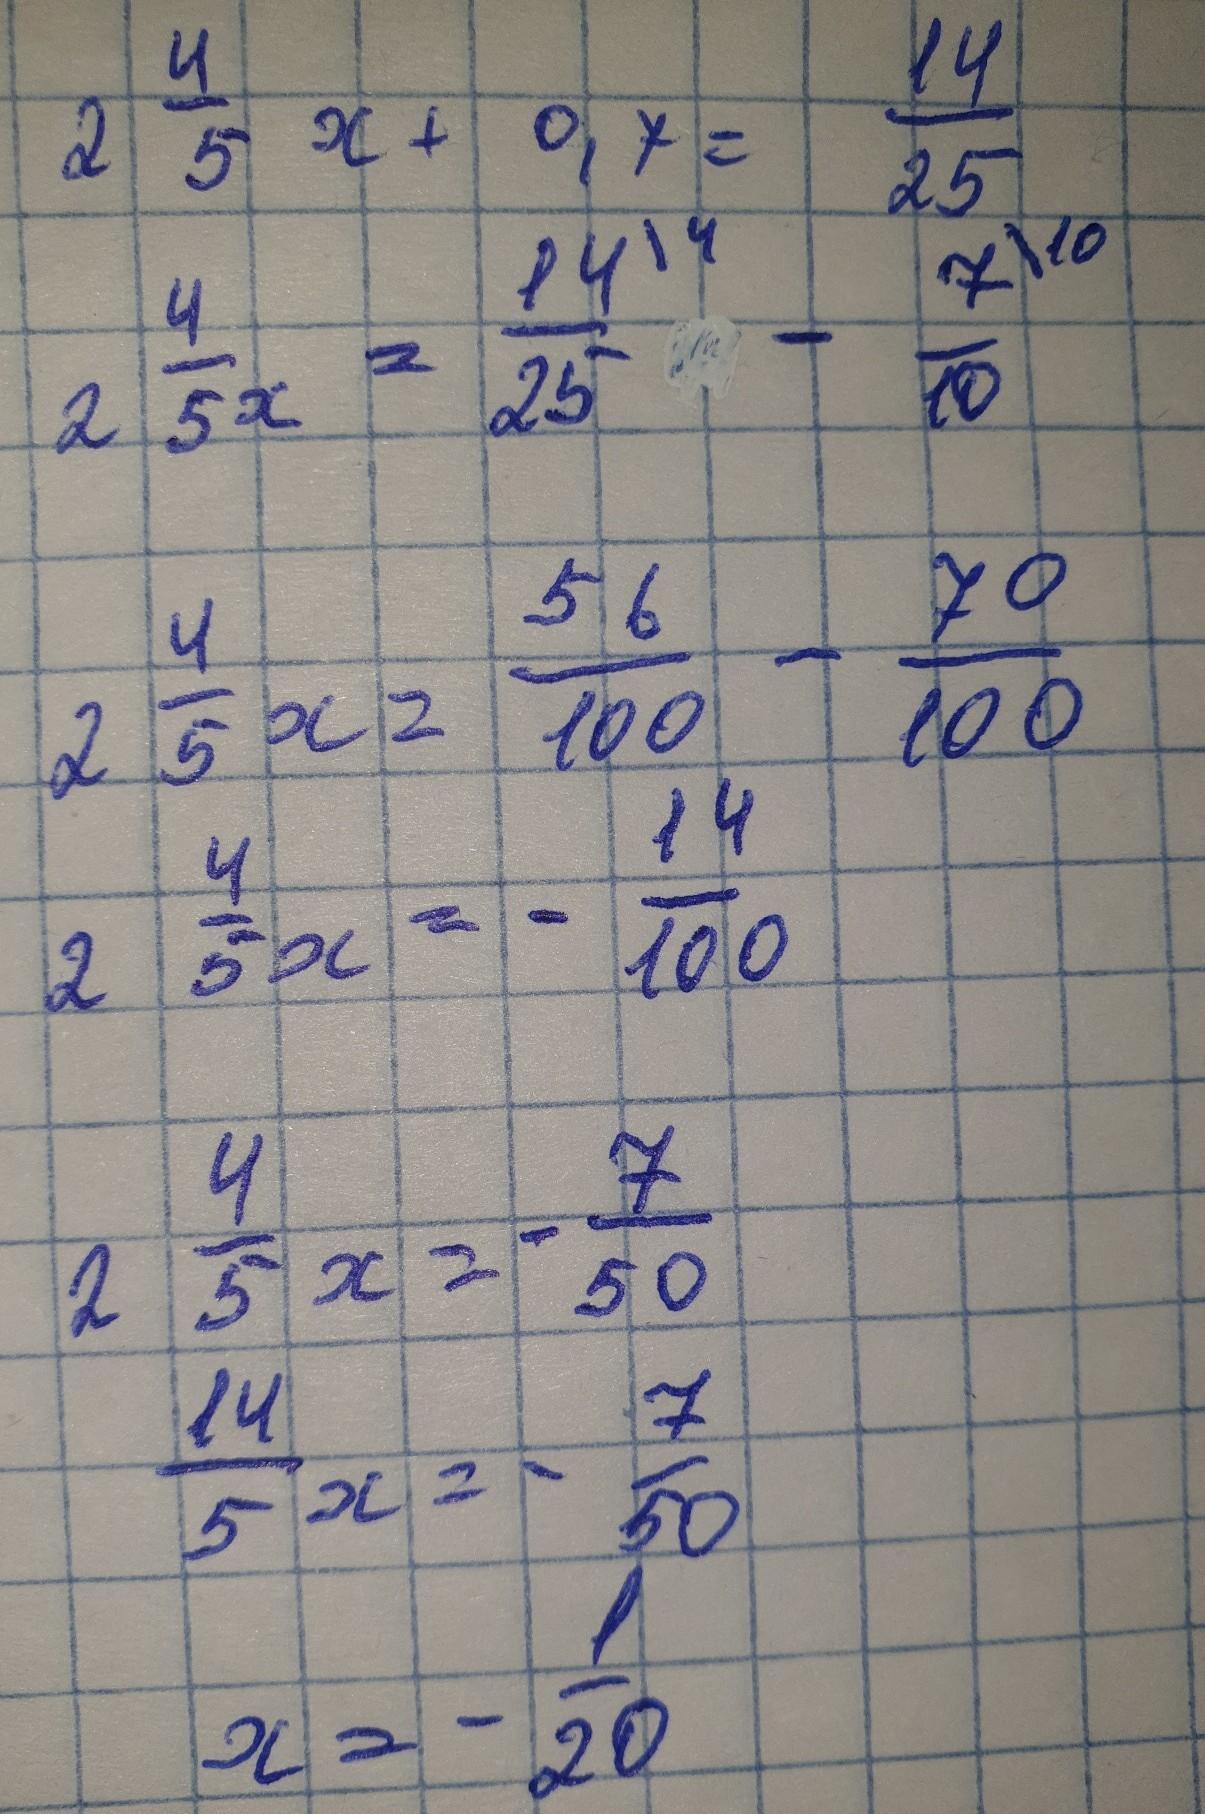 2 4/5 x + 0,7 = 14/25
2 4/5 x = 14\4/25 - 7\10/10
2 4/5 x = 56/100 - 70/100
2 4/5 x = - 14/100
2 4/5 x = - 7/50
14/5 x = - 7/50
x = - 1/20